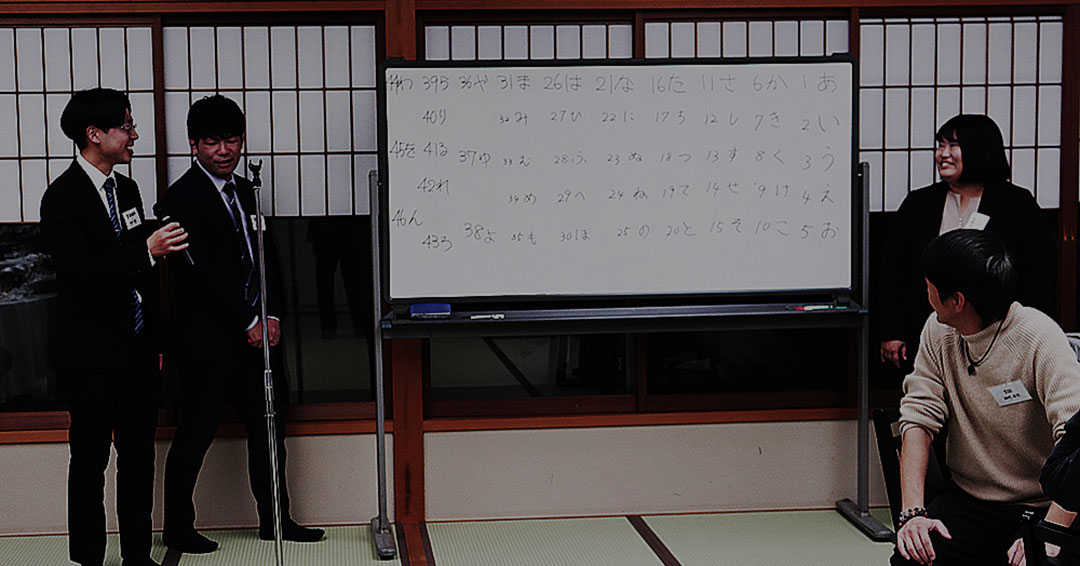 44わ 39ら 36や 31ま 26は 21な 16た 11さ 6か 1あ
40り 32み 27ひ 22に 17ち 12し 7き 2い
45を 41る 37ゆ 33む 28ふ 23ぬ 18つ 13す 8く 3う
42れ 34め 29へ 24ね 19て 14せ 9け 4え
46ん 43ろ 38よ 35も 30ほ 25の 20と 15そ 10こ 5お